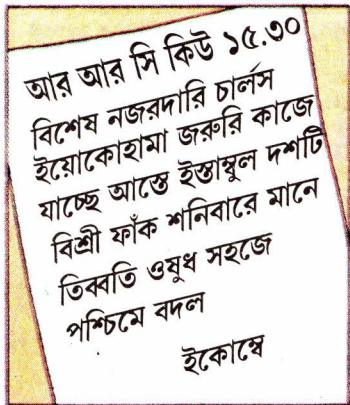 আর আর সি কিউ ১৫.৩০
বিশেষ নজরদারি চার্লস
ইয়োকোহামা জরুরি কাজে
যাচ্ছে আস্তে ইস্তাম্বুল দশটি
বিশ্রী ফাঁক শনিবারে মানে
তিব্বতি ওষুধ সহজে
পশ্চিমে বদল
ইকোম্বে